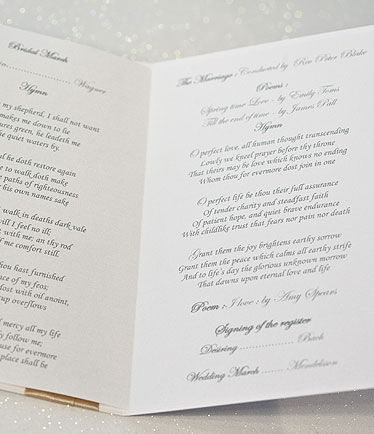 Bridal March
.................... Wagner
Hymn
my shepherd, I shall not want
makes me down to lie
ures green, he leadeth me
quiet waters by.
he doth restore again
to walk doth make
paths of righteousness
his own names sake
walk in deaths dark vale
I feel no ill;
with me; an thy rod
me comfort still.
hou hast furnished
ce of my feos;
dost with oil anoint,
up overflows
mercy all my life
follow me;
use for evermore
place shall be
The Marriage : Conducted by Rev Peter Blake
Poems :
Spring time Love - by Emily Toms
Till the end of time - by James Pall
Hymn
O perfect love, all human thought transcending
Lowly we kneel prayer before thy throne
That theirs may be love which knows no ending
Whom thou for evermore dost join in one
O perfect life be thou their full assurance
Of tender charity and steadfast faith
Of patient hope, and quiet brave endurance
With childlike trust that fears nor pain nor death
Grant them the joy brightens earthly sorrow
Grant them the peace which calms all earthly strife
And to life's day the glorious unknown morrow
That dawns upon eternal love and life
Poem : I love : by Amy Spears
Signing of the register
Desiring .................... Bach
Wedding March ........... Mendelsson